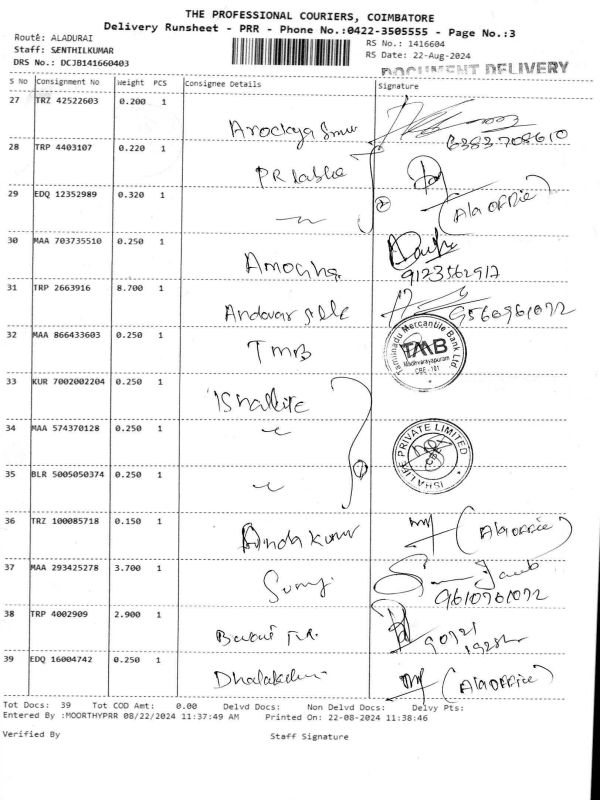 THE PROFESSIONAL COURIERS, COIMBATORE
Delivery Runsheet - PRR - Phone No.:0422-3505555 - Page No.:3
Route: ALADURAI
Staff: SENTHILKUMAR
DRS No.: DCJB141660403
RS No.: 1416604
RS Date: 22-Aug-2024
DOCUMENT DELIVERY
S No Consignment No Weight PCS Consignee Details Signature
27 TRZ 42522603 0.200 1
6383708610
28 TRP 4403107 0.220 1
29 EDQ 12352989 0.320 1 2 (Ala office)
30 MAA 703735510 0.250 1 Amogha
9123562917
31 TRP 2663916 8.700 1 Andavar
9566961072
32 MAA 866433603 0.250 1 TMB
Tamilnadu Mercantile Bank Ltd
TMB
Madhvarayapuram
CBE - 101
33 KUR 7002002204 0.250 1 Ishalife
34 MAA 574370128 0.250 1
ISHA LIFE PRIVATE LIMITED
35 BLR 5005050374 0.250 1
36 TRZ 100085718 0.150 1 (Ala office)
37 MAA 293425278 3.700 1
38 TRP 4002909 2.900 1
39 EDQ 16004742 0.250 1 (Ala office)
Tot Docs: 39 Tot COD Amt: 0.00 Delvd Docs: Non Delvd Docs: Delvy Pts:
Entered By :MOORTHYPRR 08/22/2024 11:37:49 AM Printed On: 22-08-2024 11:38:46
Verified By Staff Signature